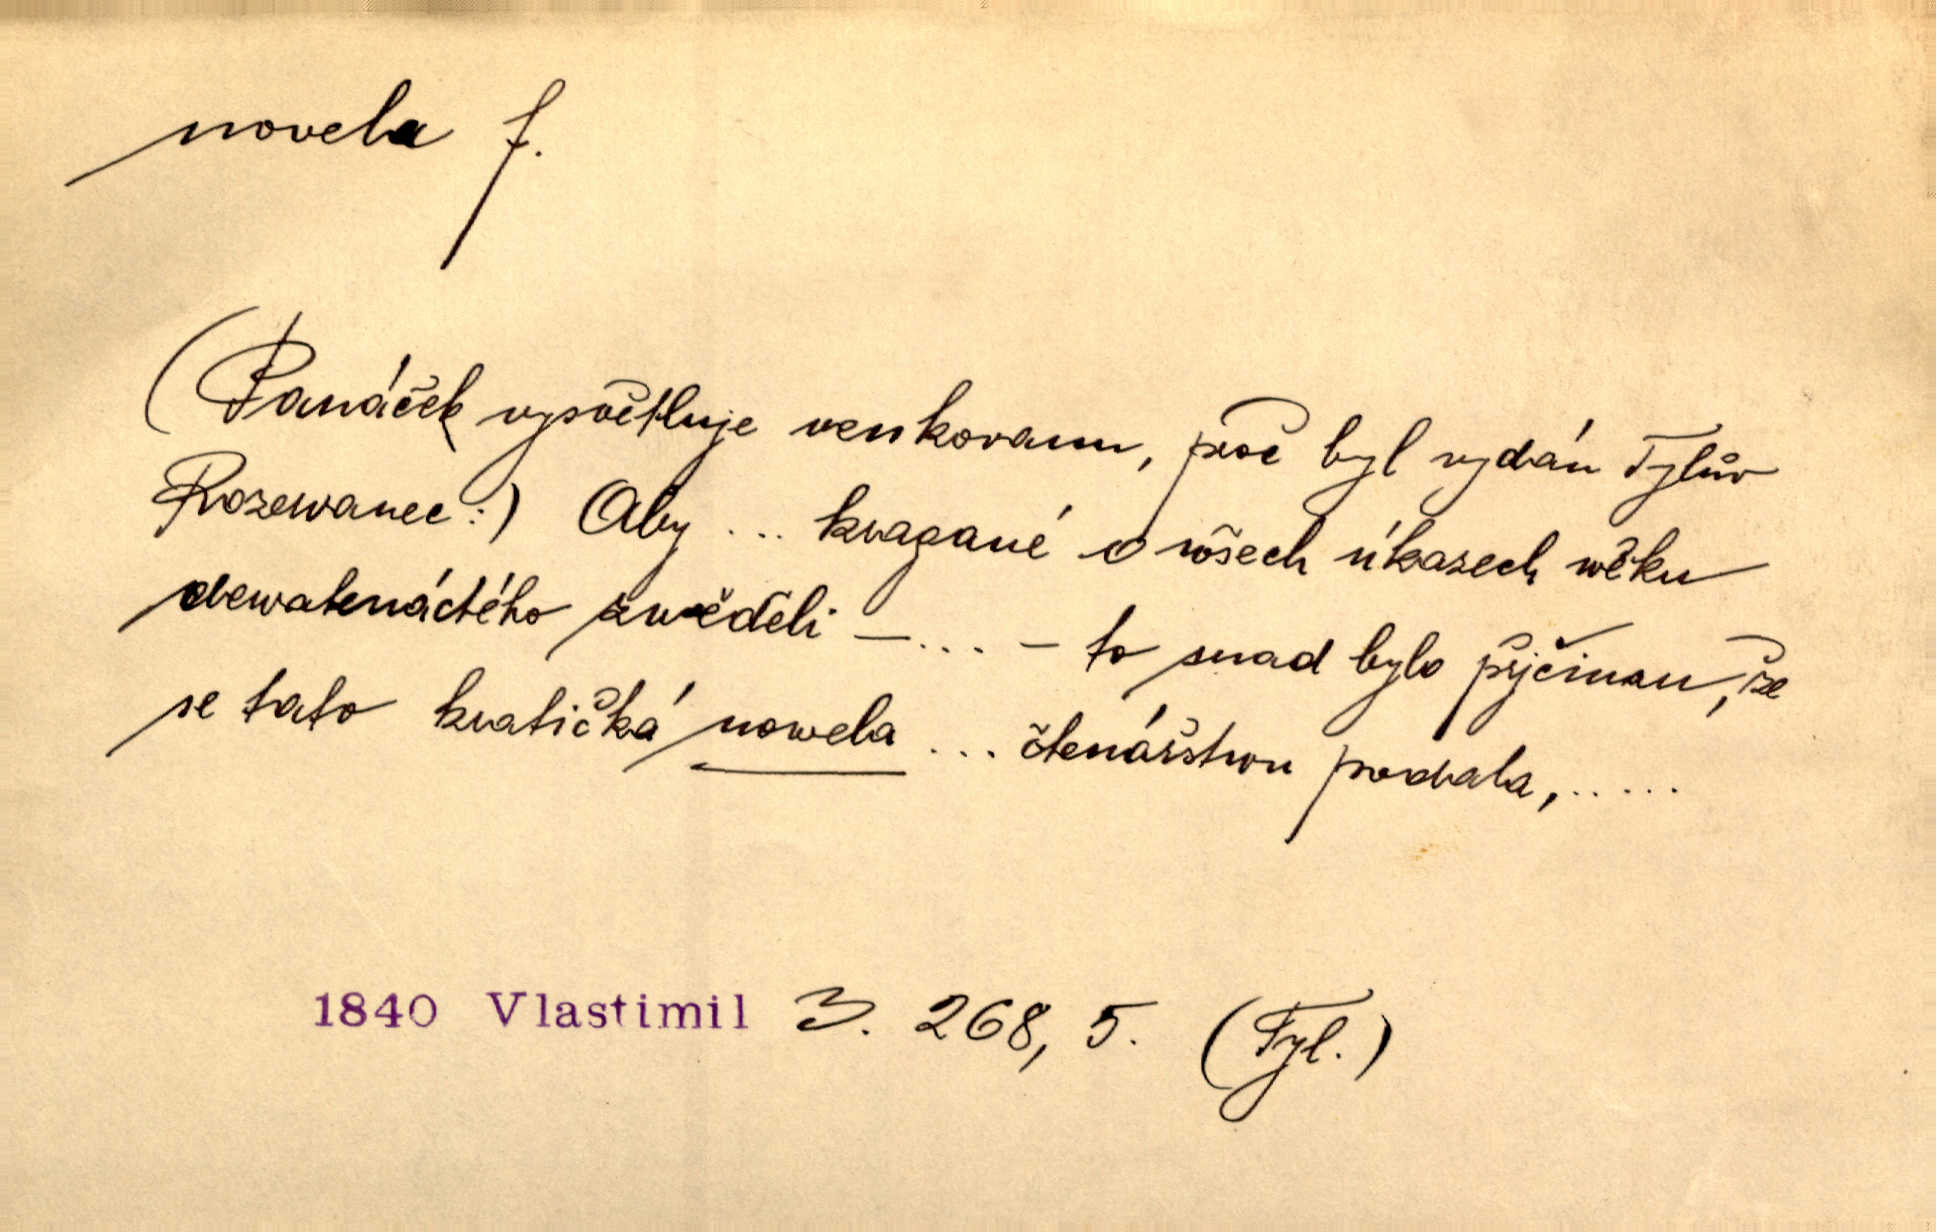 novela f.
(Panáček vysvětluje venkovanu, proč byl vydán Tylův
Rozewanec:) Aby ... kragané o wšech úkazech wěku
dewatenáctého zwěděli — ... — to snad bylo přjčinau, že
se tato kratičká nowela ... čtenářstwu podala, .....
1840 Vlastimil 3. 268, 5. (Tyl.)